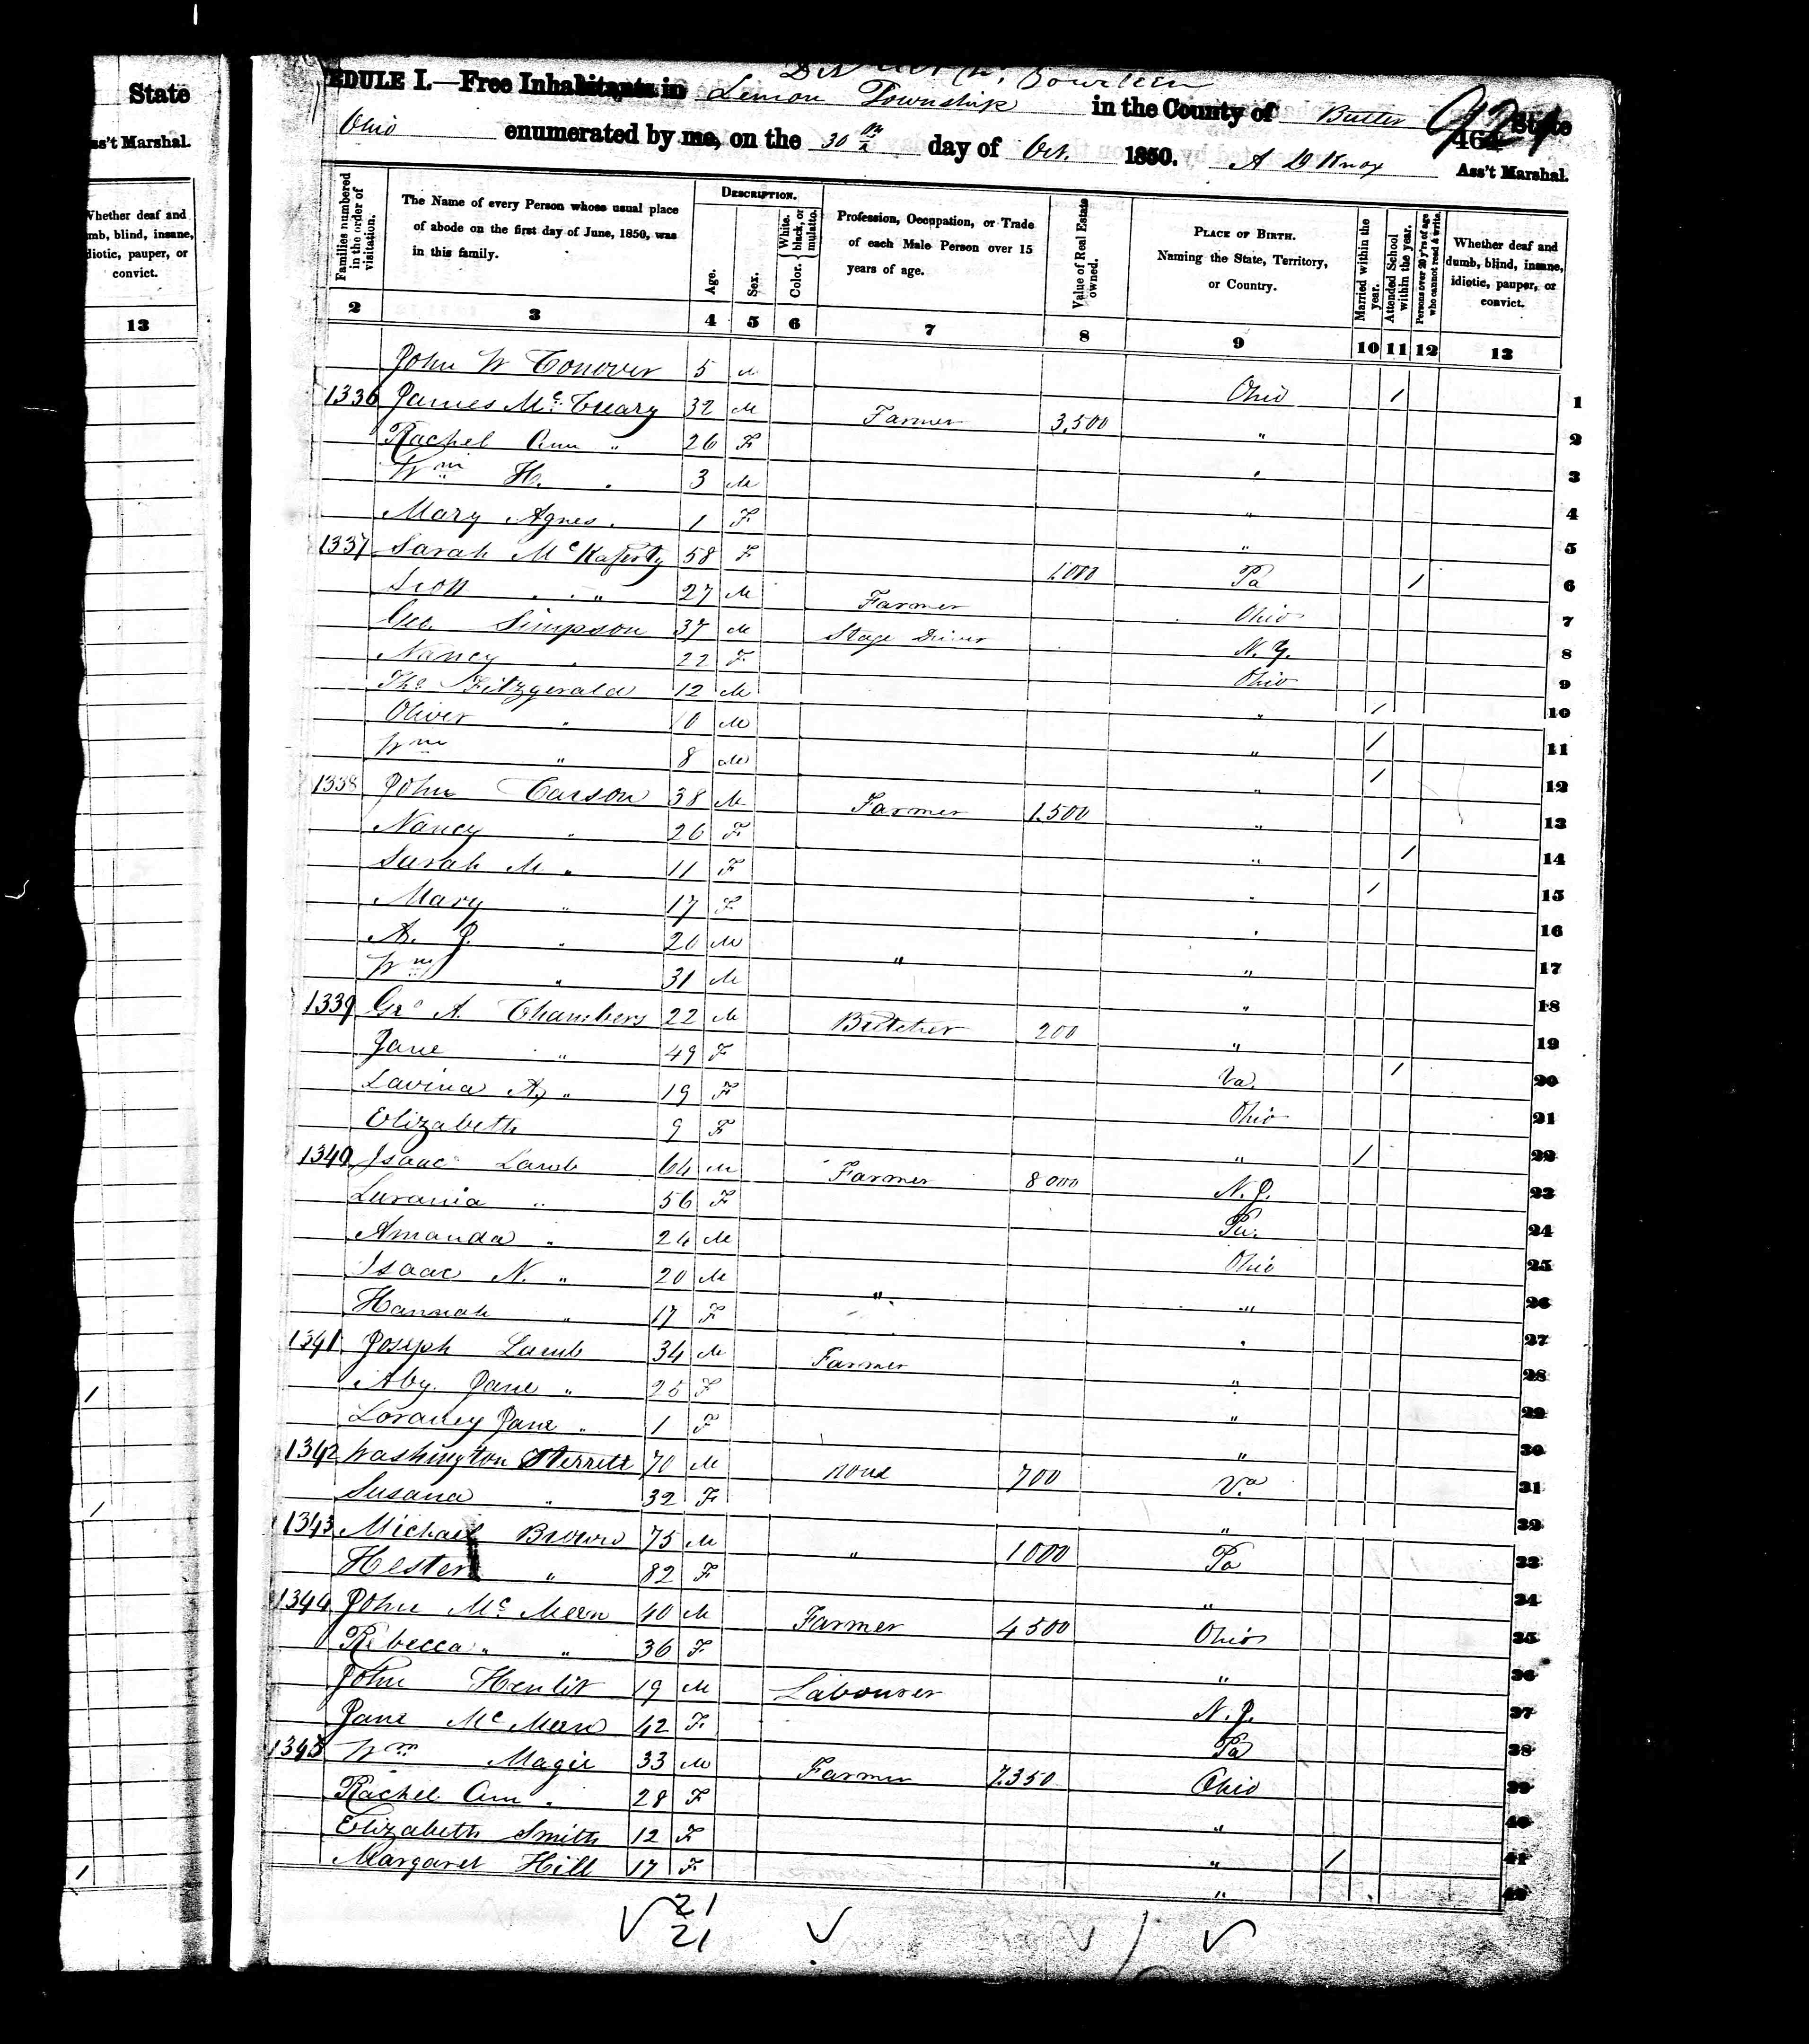 State
ss't Marshal.
Whether deaf and
mb, blind, insane,
diotic, pauper, or
convict.
13
EDULE I.—Free Inhabitants in Lemon Township in the County of Butler State
Ohio enumerated by me, on the 30th day of Oct. 1850. Ass't Marshal.
Families numbered in the order of visitation.
The Name of every Person whose usual place of abode on the first day of June, 1850, was in this family.
DESCRIPTION.
Age.
Sex.
Color. { White, black, or mulatto.
Profession, Occupation, or Trade of each Male Person over 15 years of age.
Value of Real Estate owned.
PLACE OF BIRTH.
Naming the State, Territory, or Country.
Married within the year.
Attended School within the year.
Persons over 20 y'rs of age who cannot read & write.
Whether deaf and dumb, blind, insane, idiotic, pauper, or convict.
2 3 4 5 6 7 8 9 10 11 12 13
John W Conover 5 M Ohio / 1
1336 James Mc Creary 32 M Farmer 3,500 " 2
Rachel Ann " 26 F " 3
Wm H. " 3 M " 4
Mary Agnes " 1 F " 5
1337 Sarah McKaferty 58 F 1000 Pa / 6
Scott " " 27 M Farmer Ohio 7
Geo Simpson 37 M Stage Driver N.Y. 8
Nancy " 22 F Ohio 9
Tho Fitzgerald 12 M " / 10
Oliver " 10 M " / 11
Wm " 8 M " / 12
1338 John Carson 38 M Farmer 1.500 " 13
Nancy " 26 F " / 14
Sarah M " 11 F " / 15
Mary " 17 F " 16
A. J. " 20 M " " 17
Wm " 31 M " 18
1339 Geo A Chambers 22 M Butcher 200 " 19
Jane " 49 F Va. / 20
Lavina A, " 19 F Ohio 21
Elizabeth 9 F " / 22
1340 Isaac Lamb 64 M Farmer 8000 N.J. 23
Lurania " 56 F Pa. 24
Amanda " 24 M Ohio 25
Isaac N. " 20 M " " 26
Hannah " 17 F " 27
1341 Joseph Lamb 34 M Farmer " 28
Aby Jane " 25 F " 29
Loraney Jane " 1 F " 30
1342 Washington 70 M None 700 Va 31
Susana " 32 F " 32
1343 Michael Brown 75 M " 1000 Pa 33
Hester " 82 F " 34
1344 John Mc Meen 40 M Farmer 4500 Ohio 35
Rebecca " " 36 F " 36
John 19 M Labourer N.J. 37
Jane Mc Meen 42 F Pa 38
1345 Wm Magie 33 M Farmer 7.350 Ohio 39
Rachel Ann " 28 F " 40
Elizabeth Smith 12 F " / 41
Margaret Hill 17 F " 42
21
21